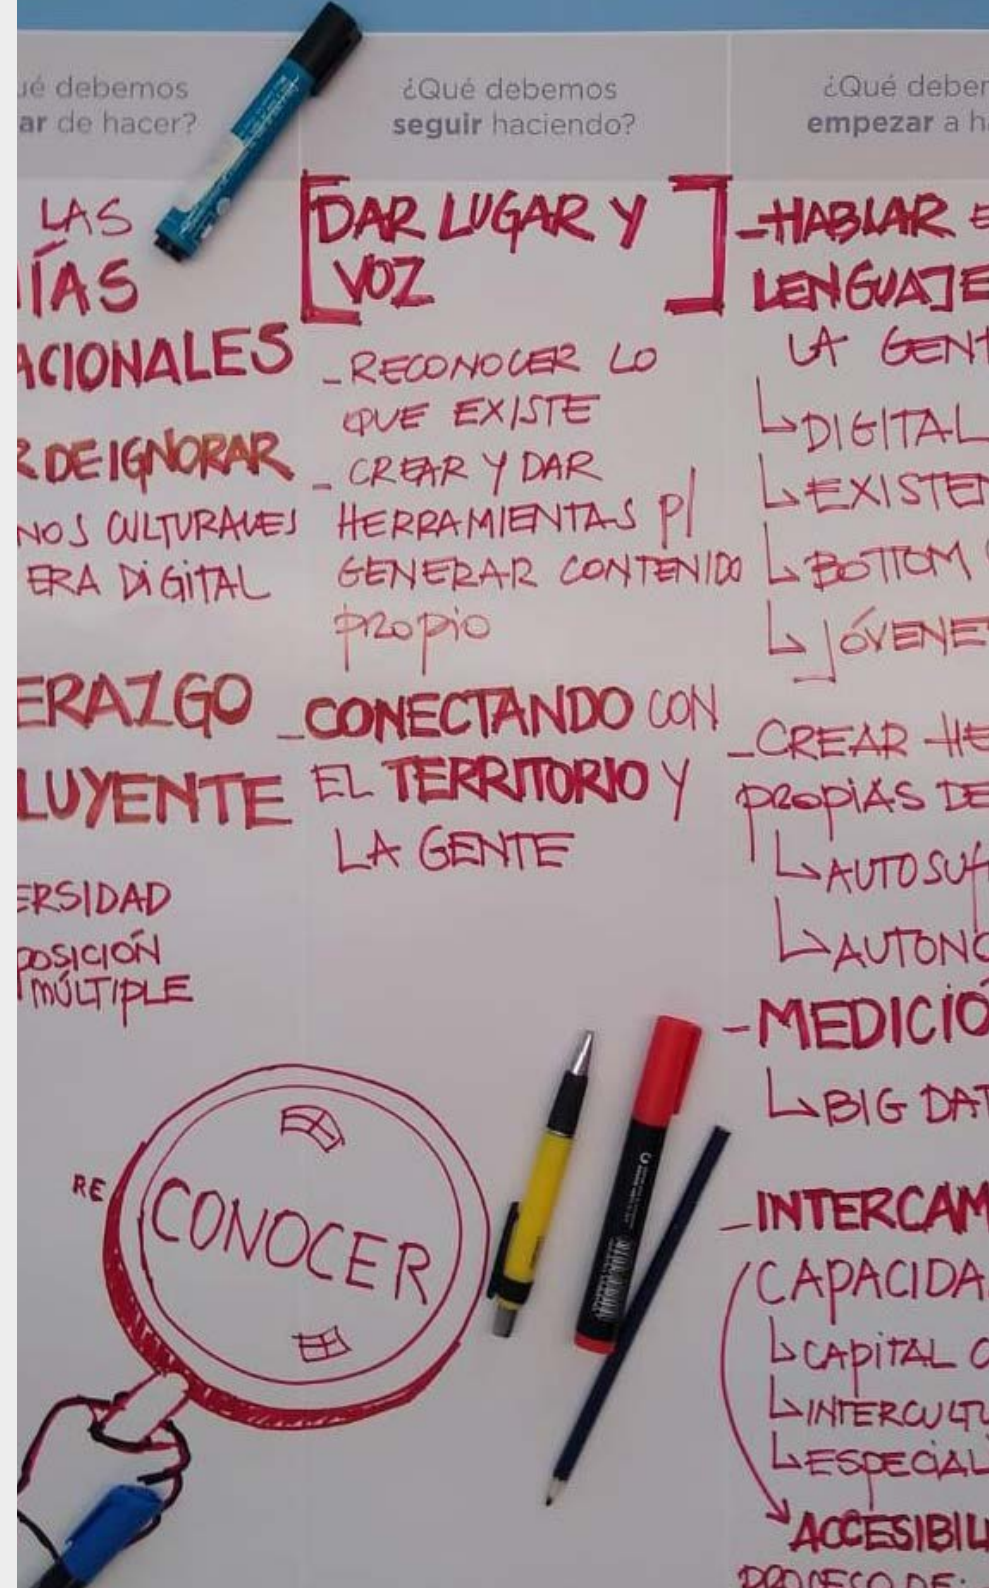 ué debemos
ar de hacer?
LAS
ÍAS
ACIONALES
R DE IGNORAR
NOS CULTURALES
ERA DIGITAL
ERAZGO
LUYENTE
ERSIDAD
POSICIÓN
MÚLTIPLE
¿Qué debemos
seguir haciendo?
[DAR LUGAR Y
VOZ]
_RECONOCER LO
QUE EXISTE
_CREAR Y DAR
HERRAMIENTAS P/
GENERAR CONTENIDO
PROPIO
_CONECTANDO CON
EL TERRITORIO Y
LA GENTE
RE
CONOCER
¿Qué deber
empezar a ha
_HABLAR E
LENGUAJE
LA GENT
↳DIGITAL
↳EXISTEN
↳BOTTOM
↳JÓVENES
_CREAR HE
PROPIAS DE
↳AUTOSUF
↳AUTONO
-MEDICIÓ
↳BIG DAT
_INTERCAM
CAPACIDA
↳CAPITAL C
↳INTERCULTU
↳ESPECIAL
ACCESIBILI
PROCESO DE: